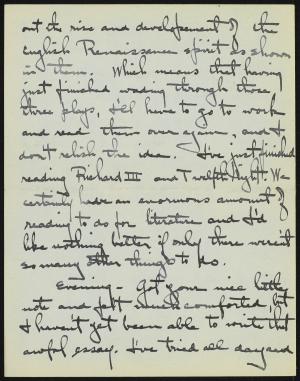 out the rise and development of the
English Renaissance spirit as shown
in them. Which means that having
just finished wading through those
three plays, I'll have to go to work
and read them over again, and I
don't relish the idea. I've just finished
reading Richard III and Twelfth Night. We
certainly have an enormous amount of
reading to do for literature and I'd
like nothing better if only there weren't
so many other things to do.
Evening - Got your nice little
note and felt much comforted, but
I haven't yet been able to write that
awful essay. I've tried all day and